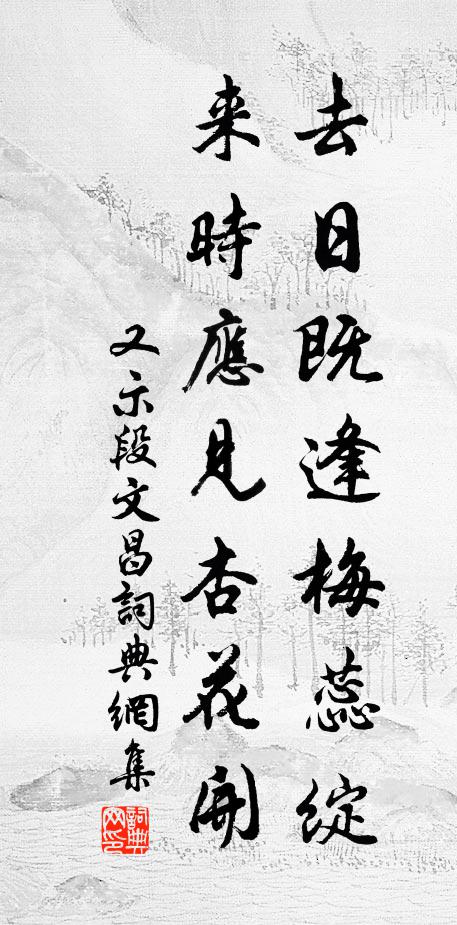 去日既逢梅蕊綻
来時應見杏花開
又示段文昌詞典網集
詞典網印